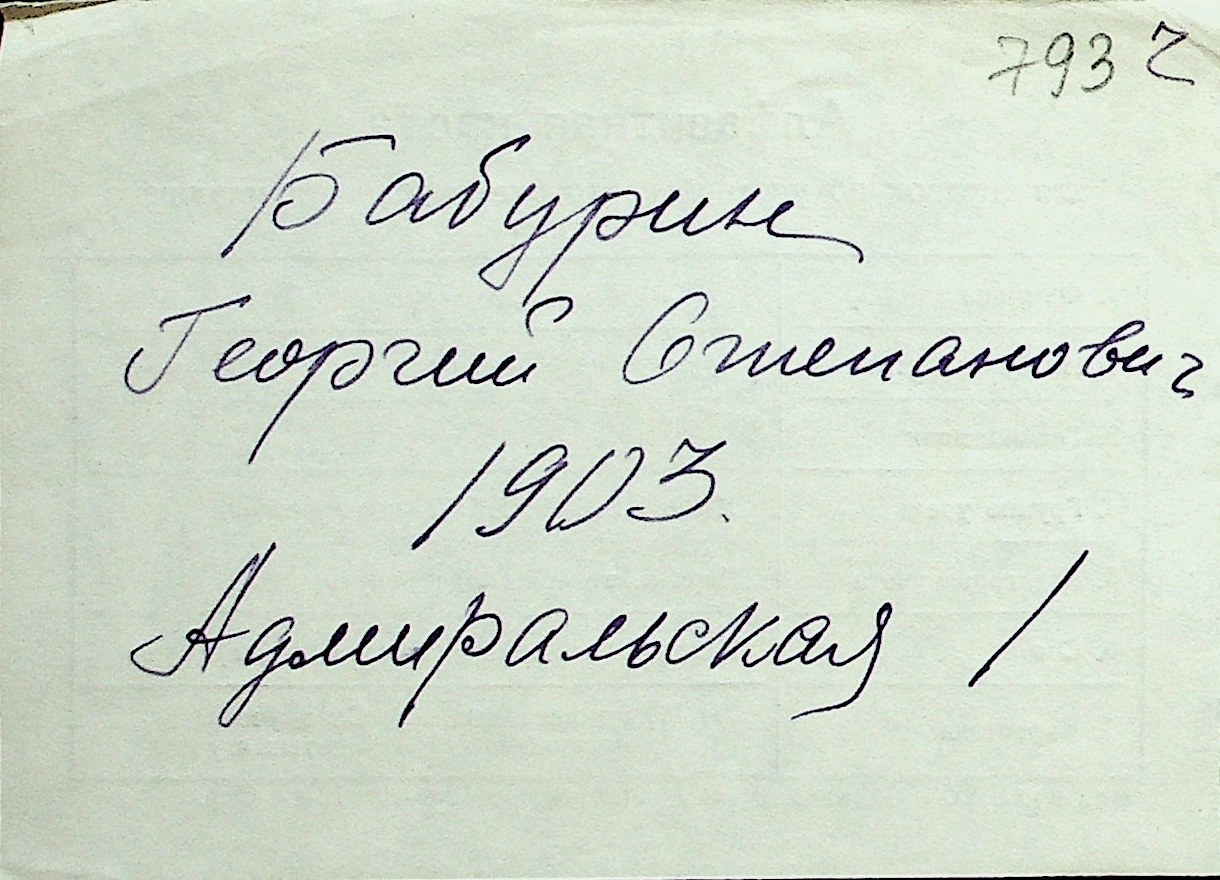 793 ч
Бабурин
Георгий Степанович
1903.
Адмиральская 1